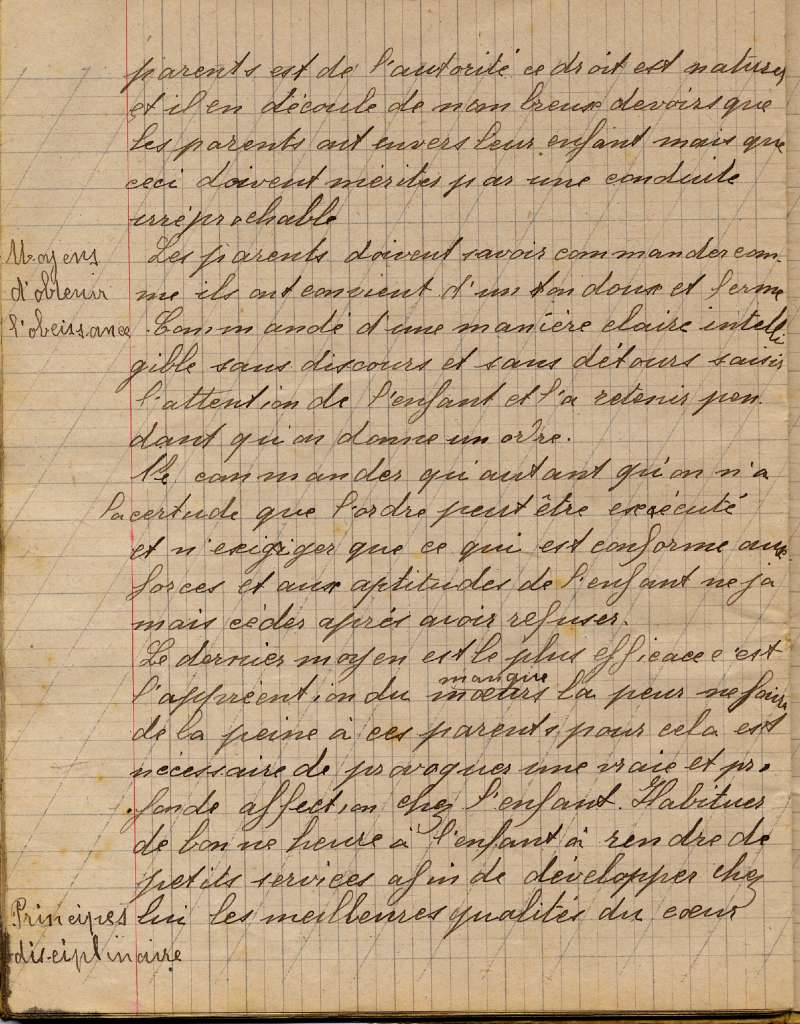 parents est de l'autorité ce droit est naturel
et il en découle de nombreux devoirs que
les parents ont envers leur enfant mais que
ceci doivent mérites par une conduite
irréprochable
Moyens
d'obtenir
l'obeissance
Les parents doivent savoir commander com-
me ils ont convient d'un ton doux et ferme
. Commandé d'une manière claire intelli
gible sans discours et sans détours saisir
l'attention de l'enfant et l'a retenir pen
dant qu'on donne un ordre.
Ne commander qu'autant qu'on n'a
la certude que l'ordre peut être exécuté
et n'exigiger que ce qui est conforme aux
forces et aux aptitudes de l'enfant ne ja
mais céder après avoir refuser.
Le dernier moyen est le plus efficace c'est
l'appréention du manque
moeurs la peur ne faire
de la peine à ces parents pour cela est
nécessaire de provoquer une vraie et pro
fonde affection chez l'enfant. Habituer
de bonne heure à l'enfant à rendre de
petits services afin de développer chez
lui les meilleures qualités du cœur
Principes
disciplinaire